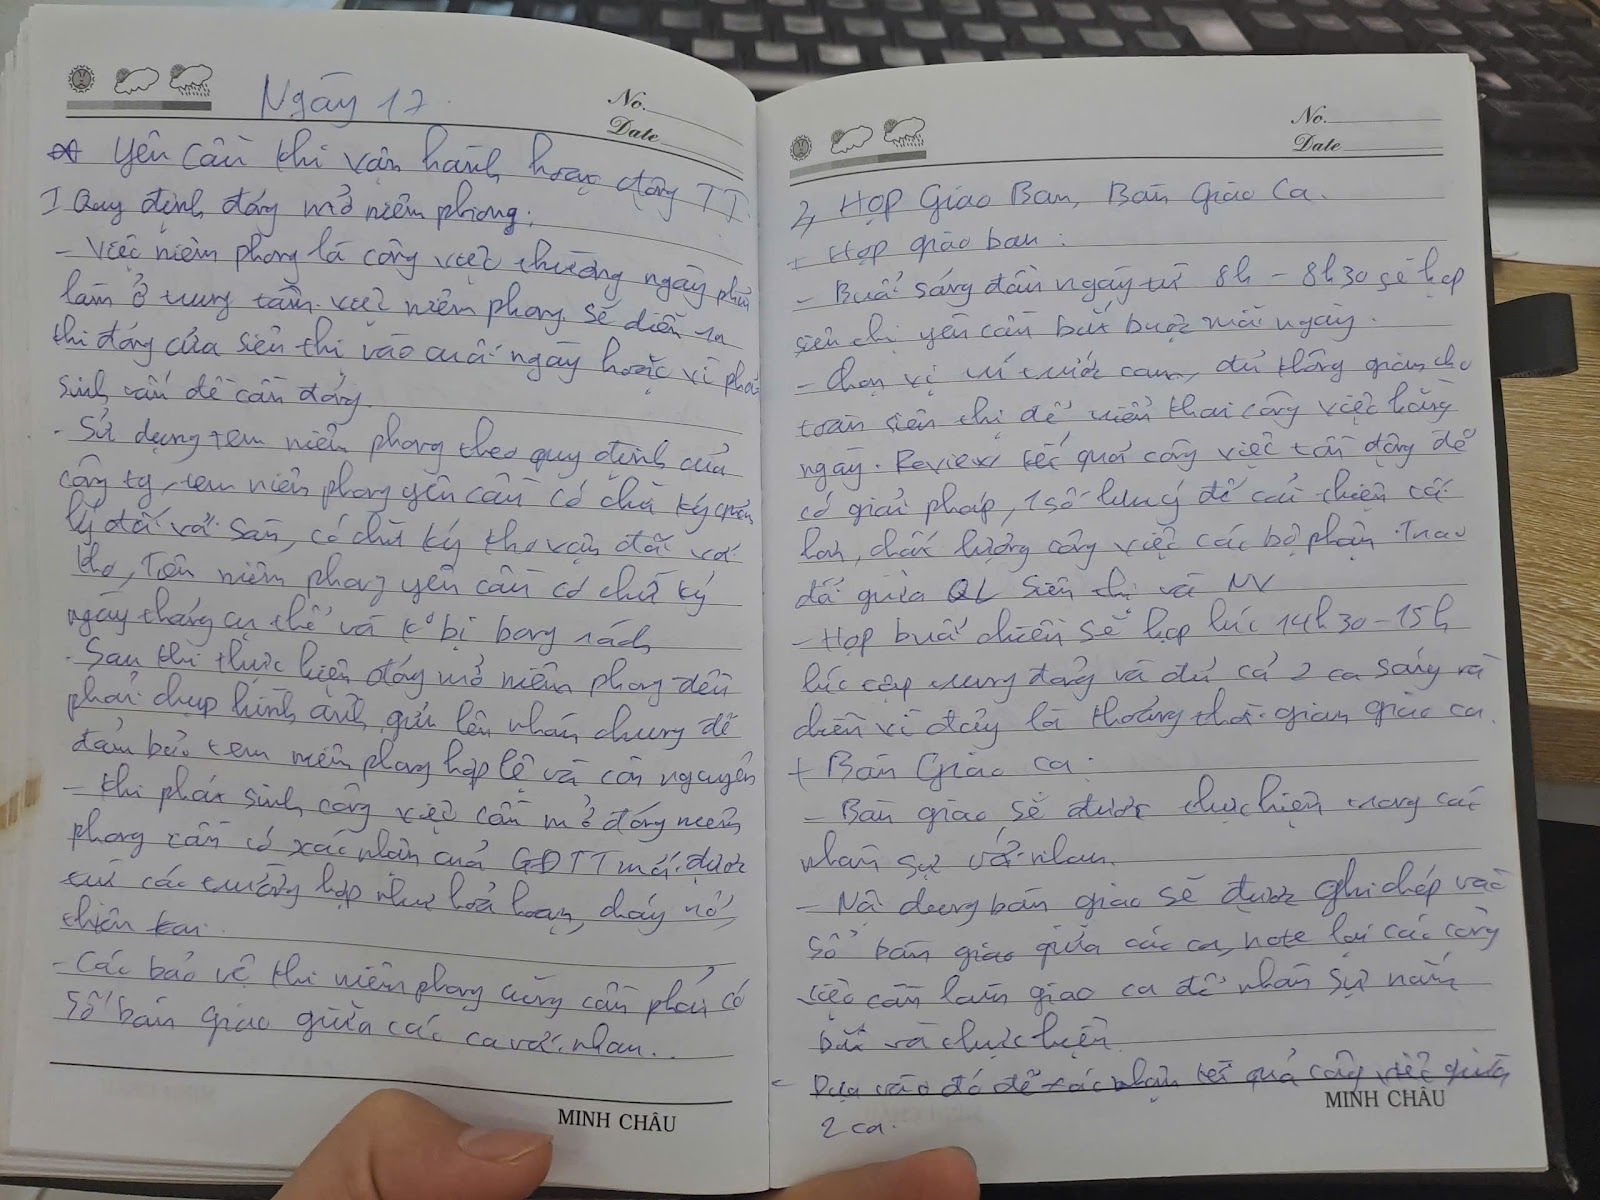 Ngày 17.
No.
Date
* Yêu cầu khi vận hành hoạt động TT.
I Quy định đóng mở niêm phong:
- Việc niêm phong là công việc thường ngày phải
làm ở trung tâm. việc niêm phong sẽ diễn ra
khi đóng cửa siêu thị vào cuối ngày hoặc vì phát
sinh vấn đề cần đóng.
- Sử dụng tem niêm phong theo quy định của
công ty, tem niêm phong yêu cầu có chữ ký quản
lý đối với sàn, có chữ ký kho vận đối với
kho, Tem niêm phong yêu cầu có chữ ký
ngày tháng cụ thể và k° bị bong rách
- Sau khi thực hiện đóng mở niêm phong đều
phải chụp hình ảnh, gửi lên nhóm chung để
đảm bảo tem niêm phong hợp lệ và còn nguyên
- Khi phát sinh công việc cần mở đóng niêm
phong cần có xác nhận của GĐTT mới được
trừ các trường hợp như hoả hoạn, cháy nổ,
thiên tai.
- Các bảo vệ khi niêm phong cũng cần phải có
sổ bàn giao giữa các ca với nhau...
MINH CHÂU
No.
Date
2, Họp Giao Ban, Bàn Giao Ca.
+ Họp giao ban:
- Buổi sáng đầu ngày từ 8h - 8h30 sẽ họp
siêu thị yêu cầu bắt buộc mỗi ngày.
- Chọn vị trí trước cam, đủ không gian cho
toàn siêu thị để triển khai công việc hằng
ngày. Review kết quả công việc tồn đọng để
có giải pháp, 1 số lưu ý để cải thiện tốt
hơn, chất lượng công việc các bộ phận. Trao
đổi giữa QL siêu thị và NV
- Họp buổi chiều sẽ họp lúc 14h30 - 15h
lúc tập trung đông và đủ cả 2 ca sáng và
chiều vì đây là khoảng thời gian giao ca.
+ Bàn Giao ca:
- Bàn giao sẽ được thực hiện trong các
nhân sự với nhau.
- Nội dung bàn giao sẽ được ghi chép vào
sổ bàn giao giữa các ca, note lại các công
việc cần làm giao ca để nhân sự nắm
bắt và thực hiện.
- Dựa vào đó để xác nhận kết quả công việc giữa
MINH CHÂU
2 ca.